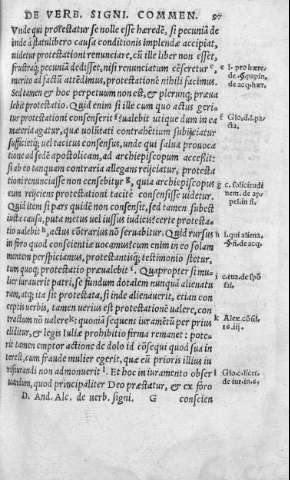 DE VERB. SIGNI. COMMEN. 97
Vnde qui protestatur se nolle esse hæredē, si pecuniā de
inde à substituto causa conditionis implendæ accipiat,
videtur protestationi renunciare, cū ille liber non esset,
frustraq; pecuniā dedisset, nisi renunciatum cēseretur e,
merito ad factū attēdimus, protestationē nihili facimus.
Sed tamen & hoc perpetuum non est, & plerunq; præua
lebit protestatio. Quid enim si ille cum quo actus geri-
tur protestationi consenserit f valebit vtique dum in ea
materia agatur, quæ volūtati contrahētium subijciatur
sufficietq́; vel tacitus consensus, vnde qui salua prouoca
tione ad sedē apostolicam, ad archiepiscopum accessit:
si ab eo tanquam contraria allegans reijciatur, protesta
tioni renunciasse non censebitur g, quia archiepiscopus
eum reijciens protestationi tacitè consensisse videtur.
Quid item si pars quidē non consensit, sed tamen subest
iusta causa, puta metus vel iussus iudicis? certè protesta
tio valebit h, actus cōtrarius nō seruabitur. Quid rursus
in foro quod conscientiæ vocamus? cum enim in eo solam
mentem perspiciamus, protestantiq́; testimonio stetur,
tum quoq; protestatio præualebit i. Quapropter si mu-
lier iurauerit patri, se fundum dotalem nunquā alienatu
ram, atq; ita sit protestata, si inde alienauerit, etiam con
ceptis verbis, tamen verius est protestationē valere, con
tractum nō valere k: quoniā sequens iuramētū per prius
ellititur, & legis Iuliæ prohibitio firma remanet: pote-
rit tamen emptor actione de dolo id cōsequi quod sua in
terest, cum fraude mulier egerit, quæ eū prioris illius in
risiurandi non admonuerit l. Et hoc in iuramento obser
uandum, quod principaliter Deo præstatur, & ex foro
D. And. Alc. de verb. signi. G conscien
e l. pro hære-
de. §. papin.
de acq. hær.
f Glo. d. l. pa-
cta.
g c. solicitudi
nem. de ap-
pel. in fi.
h l. qui aliena,
§. fi. de acq.
i
c. ex. de spō
sa.
k Alex. cōsil.
16. iij.
l Glo. c. licet.
de iur. in. 6.